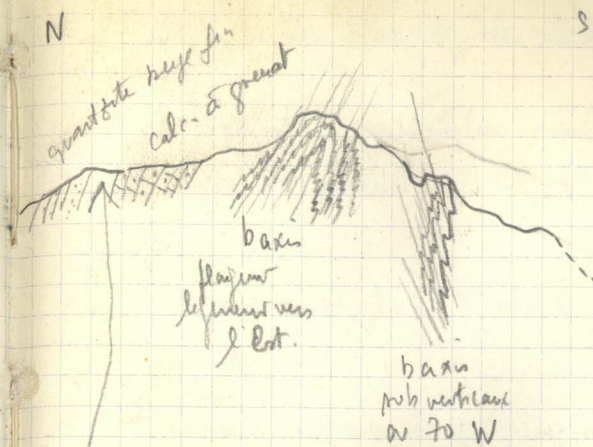 N
S
quartzite beige fin
calc. à grenat
b axes
plongeant
légèrement vers
l'Est.
b axes
subverticaux
à 70 W